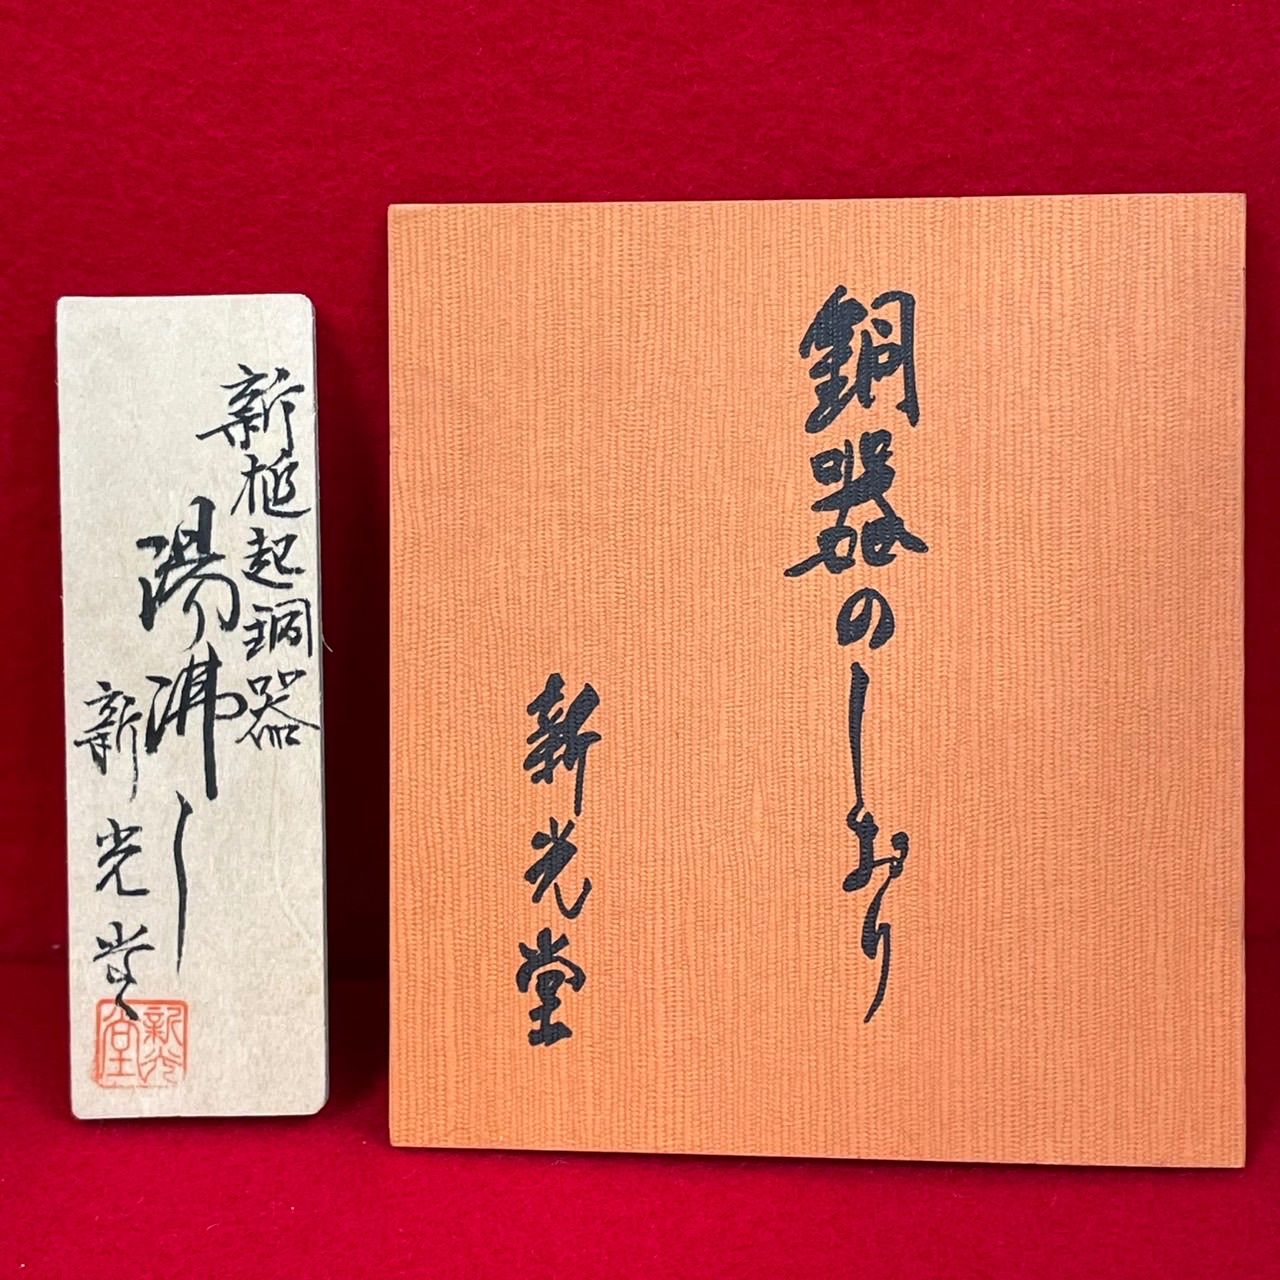 新槌起銅器
湯沸し
新光堂
新光堂
銅器のしおり
新光堂